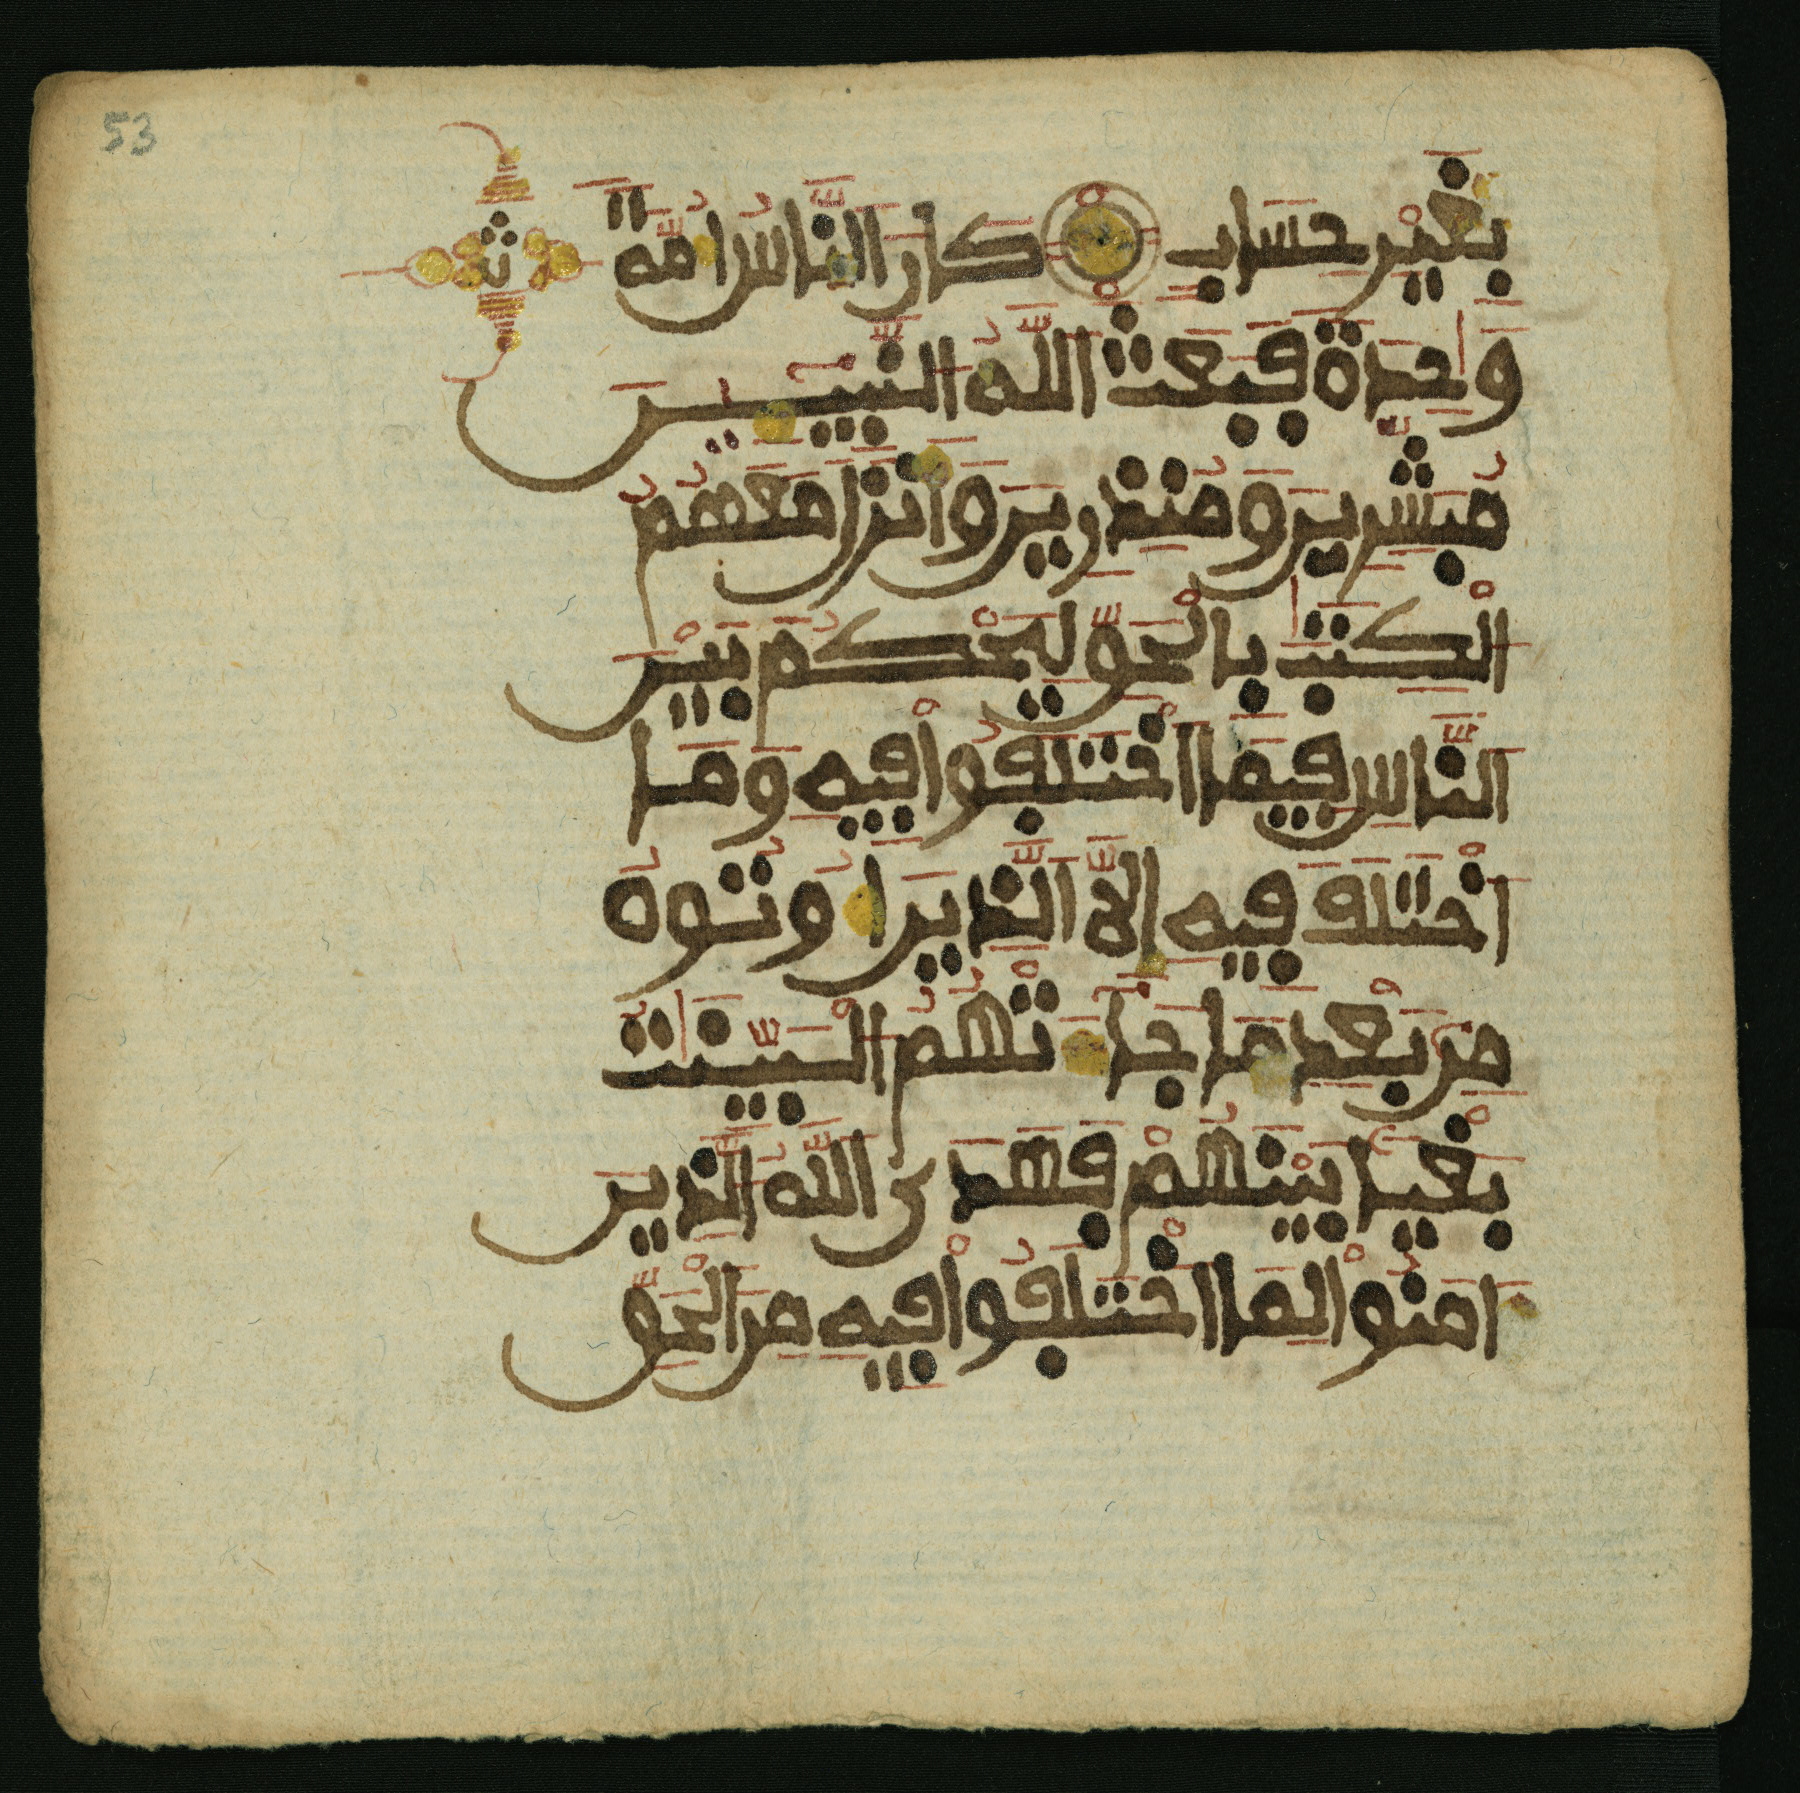 53
بِغَيْرِ حِسَابٍ كَانَ النَّاسُ أُمَّةً ثمن
وَٰحِدَةً فَبَعَثَ اللَّهُ النَّبِيـِٕينَ
مُبَشِّرِينَ وَمُنذِرِينَ وَأَنزَلَ مَعَهُمُ
الْكِتَٰبَ بِالْحَقِّ لِيَحْكُمَ بَيْنَ
النَّاسِ فِيمَا اخْتَلَفُواْ فِيهِ وَمَا
اخْتَلَفَ فِيهِ إِلَّا الَّذِينَ أُوتُوهُ
مِن بَعْدِ مَا جَآءَتْهُمُ الْبَيِّنَٰتُ
بَغْياً بَيْنَهُمْ فَهَدَى اللَّهُ الَّذِينَ
ءَامَنُواْ لِمَا اخْتَلَفُواْ فِيهِ مِنَ الْحَقِّ